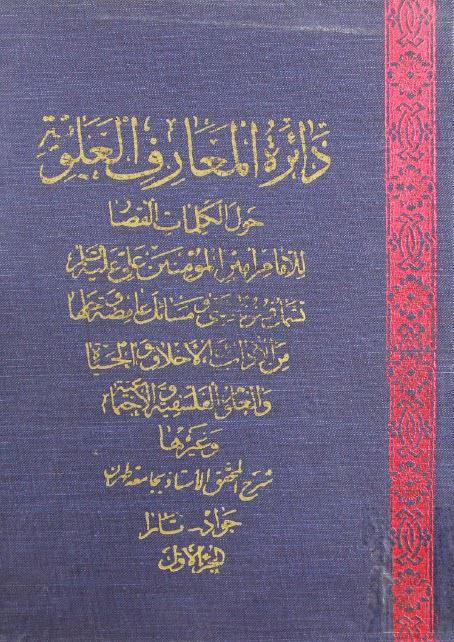 دَائِرةُ المَعَارِفِ العَلَوِيَّةِ
حَولَ الكَلِمَاتِ القِصَار
للإمام امير المؤمنين علي عليه السلام
شتى و مسائل غامضة
من الآداب والاخلاق والحياة
والعلوم الفلسفية و الاجتماع
وغيرها
شرح المحقق الأستاذ بجامعة طهران
جواد تارا
الجزء الأول